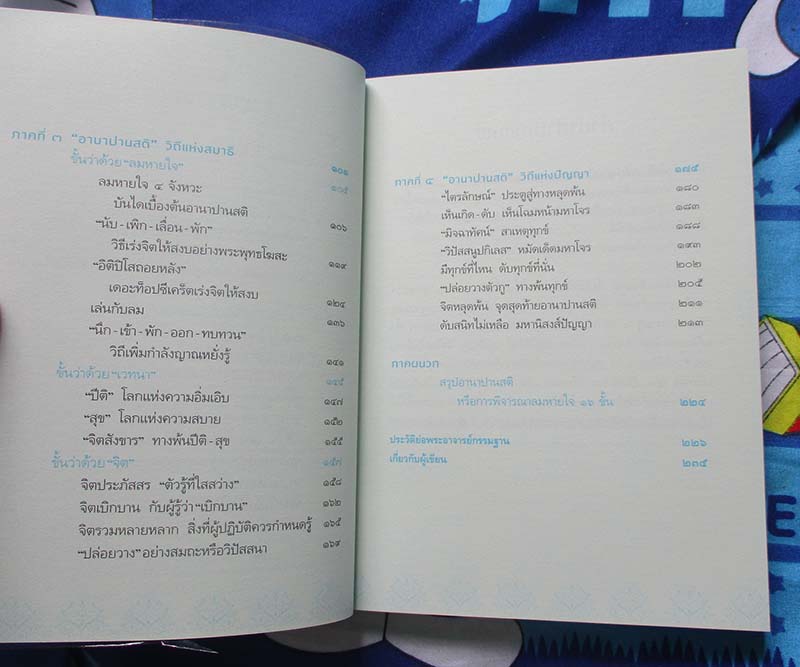 ภาคที่ ๓ “อานาปานสติ” วิถีแห่งสมาธิ ๑๐๑
ขั้นว่าด้วย“ลมหายใจ” ๑๐๕
ลมหายใจ ๔ จังหวะ
บันไดเบื้องต้นอานาปานสติ ๑๐๖
“นับ-เพิก-เลื่อน-พัก”
วิธีเร่งจิตให้สงบอย่างพระพุทธโฆสะ ๑๑๙
“อิติปิโสถอยหลัง”
เดอะท็อปซีเคร็ตเร่งจิตให้สงบ ๑๒๔
เล่นกับลม ๑๓๖
“นึก-เข้า-พัก-ออก-ทบทวน”
วิถีเพิ่มกำลังญาณหยั่งรู้ ๑๔๑
ขั้นว่าด้วย“เวทนา” ๑๔๕
“ปีติ” โลกแห่งความอิ่มเอิบ ๑๔๗
“สุข” โลกแห่งความสบาย ๑๕๒
“จิตสังขาร” ทางพ้นปีติ-สุข ๑๕๕
ขั้นว่าด้วย“จิต” ๑๕๗
จิตประภัสสร “ตัวรู้ที่ใสสว่าง” ๑๕๘
จิตเบิกบาน กับผู้รู้ว่า“เบิกบาน” ๑๖๒
จิตรวมหลายหลาก สิ่งที่ผู้ปฏิบัติควรกำหนดรู้ ๑๖๕
“ปล่อยวาง”อย่างสมถะหรือวิปัสสนา ๑๖๙
ภาคที่ ๔ “อานาปานสติ” วิถีแห่งปัญญา ๑๗๕
“ไตรลักษณ์” ประตูสู่ทางหลุดพ้น ๑๘๐
เห็นเกิด-ดับ เห็นโฉมหน้ามหาโจร ๑๘๓
“มิจฉาทัศน์” สาเหตุทุกข์ ๑๘๘
“วิปัสสนูปกิเลส” หมัดเด็ดมหาโจร ๑๙๓
มีทุกข์ที่ไหน ดับทุกข์ที่นั่น ๒๐๒
“ปล่อยวางตัวกู” ทางพ้นทุกข์ ๒๐๕
จิตหลุดพ้น จุดสุดท้ายอานาปานสติ ๒๑๑
ดับสนิทไม่เหลือ มหานิสงส์ปัญญา ๒๑๓
ภาคผนวก
สรุปอานาปานสติ
หรือการพิจารณาลมหายใจ ๑๖ ขั้น ๒๒๔
ประวัติย่อพระอาจารย์กรรมฐาน ๒๒๖
เกี่ยวกับผู้เขียน ๒๓๕